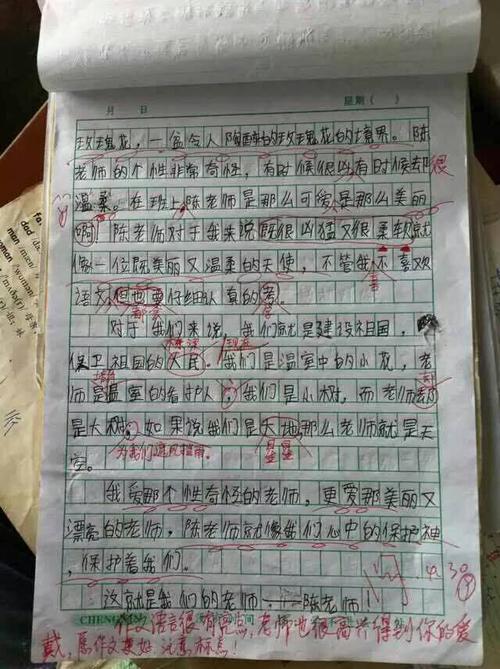 月 日 星期( )
玫瑰花,一盆令人陶醉的玫瑰花的境界。陈
老师的个性非常奇怪,有时候很凶有时候却很
温柔。在班上陈老师是那么可爱是那么美丽
啊!陈老师对于我来说既很凶猛又很柔软就
像一位既美丽又温柔的天使,不管我不喜欢
语文,但也要仔细认真的
对于我们来说,我们就是建设祖国,
保卫祖国的人民。我们是温室中的小花,老
师是温室的看护人。我们是小树,而老师
是大树。如果说我们是大地那么老师就是天
为我们遮风挡雨。
星星
空。
我爱那个性奇怪的老师,更爱那美丽又
漂亮的老师,陈老师就像我们心中的保护神
,保护着我们。
这就是我们的老师——陈老师!
CHENG
作文语言很有亮点,老师也很高兴得到你的爱
戴,愿作文更好,注意标点!